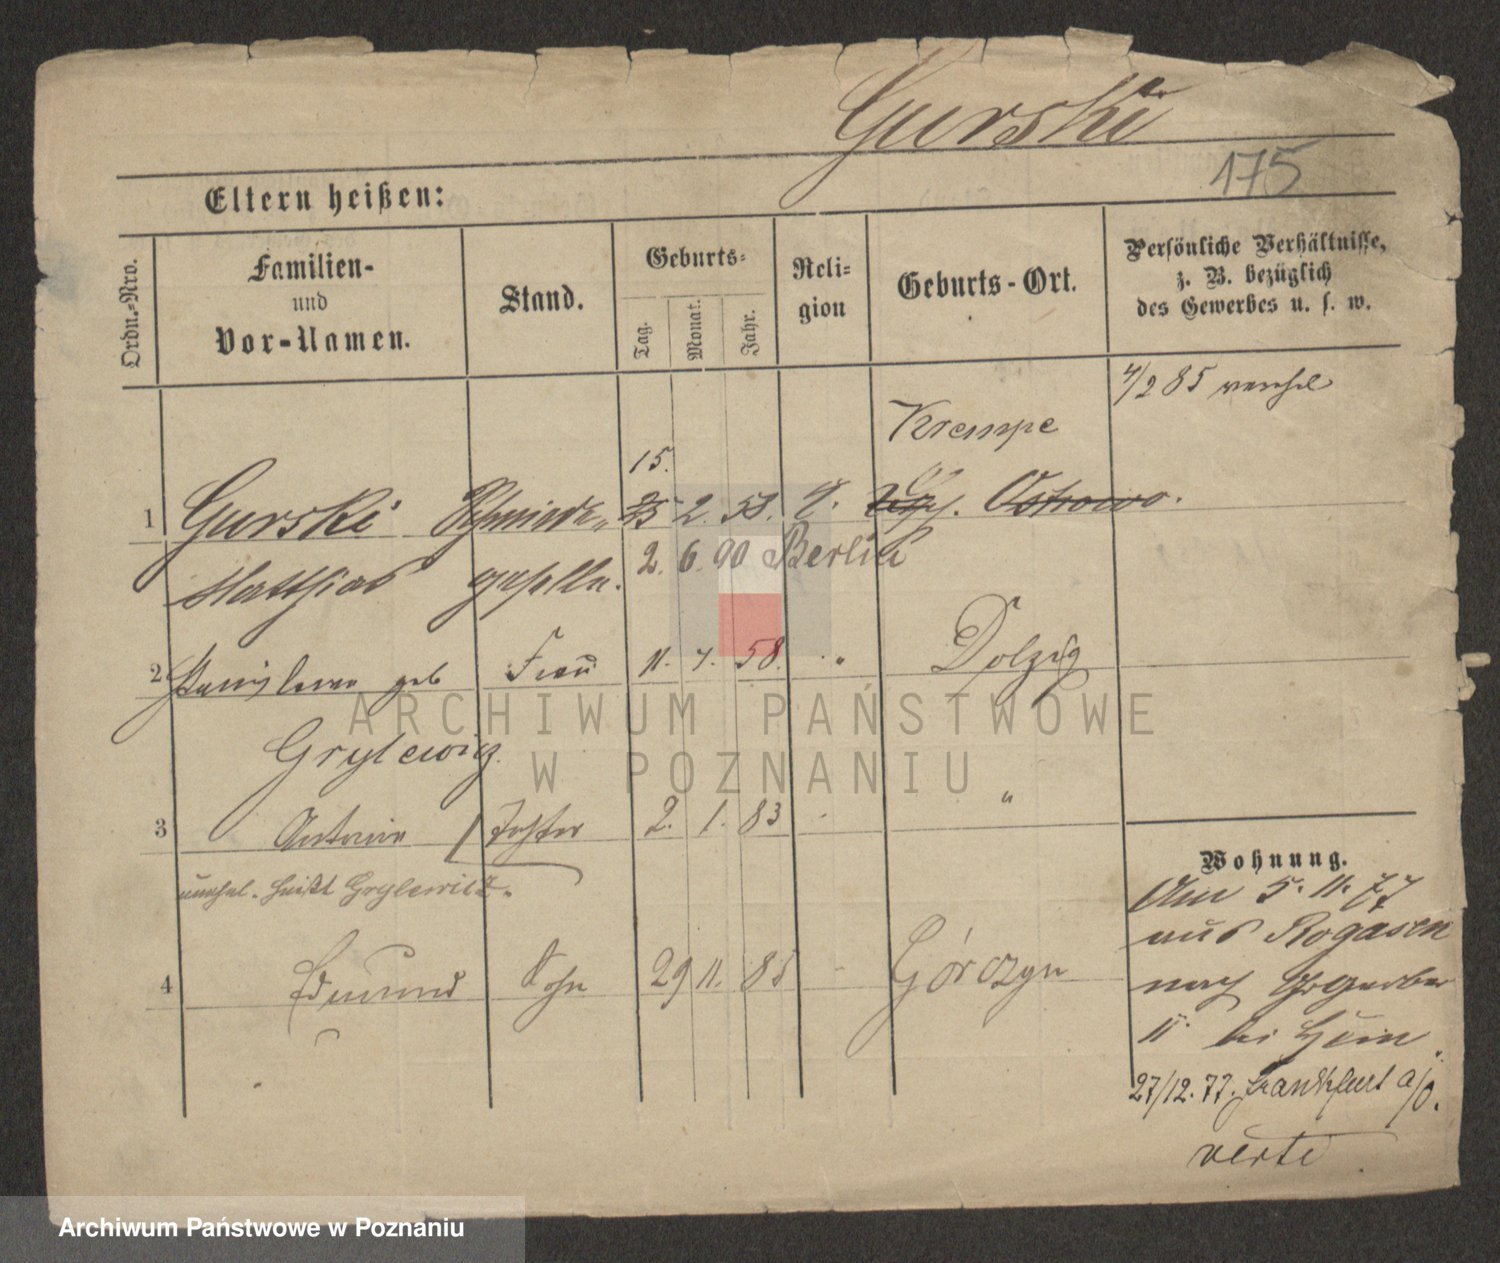 Gurski
175
Eltern heißen:
Ordn.-Nro.
Familien-
und
Vor-Namen.
Stand.
Geburts-
Tag.
Monat.
Jahr.
Reli-
gion
Geburts-Ort.
Persönliche Verhältnisse,
z. B. bezüglich
des Gewerbes u. s. w.
4/2 85
Krempe
15.
1 Gurski Schmiede- 25 2. 58. Ostrowo.
Matthias geselle. 2. 6. 90 Berlin
2 Stanislawa geb Frau 11. 4. 58. " Dolzig
Grylewicz.
3 Antonie Tochter 2. 1. 83 "
unehel. heißt Grylewitz.
4 Edmund Sohn 29 11. 85 Górczyn
Wohnung.
Am 5. 11. 77
aus Rogasen
nach Gr Gerber
11. bei
27/12. 77. Frankfurt a/O.
verte
ARCHIWUM PAŃSTWOWE
W POZNANIU
Archiwum Państwowe w Poznaniu